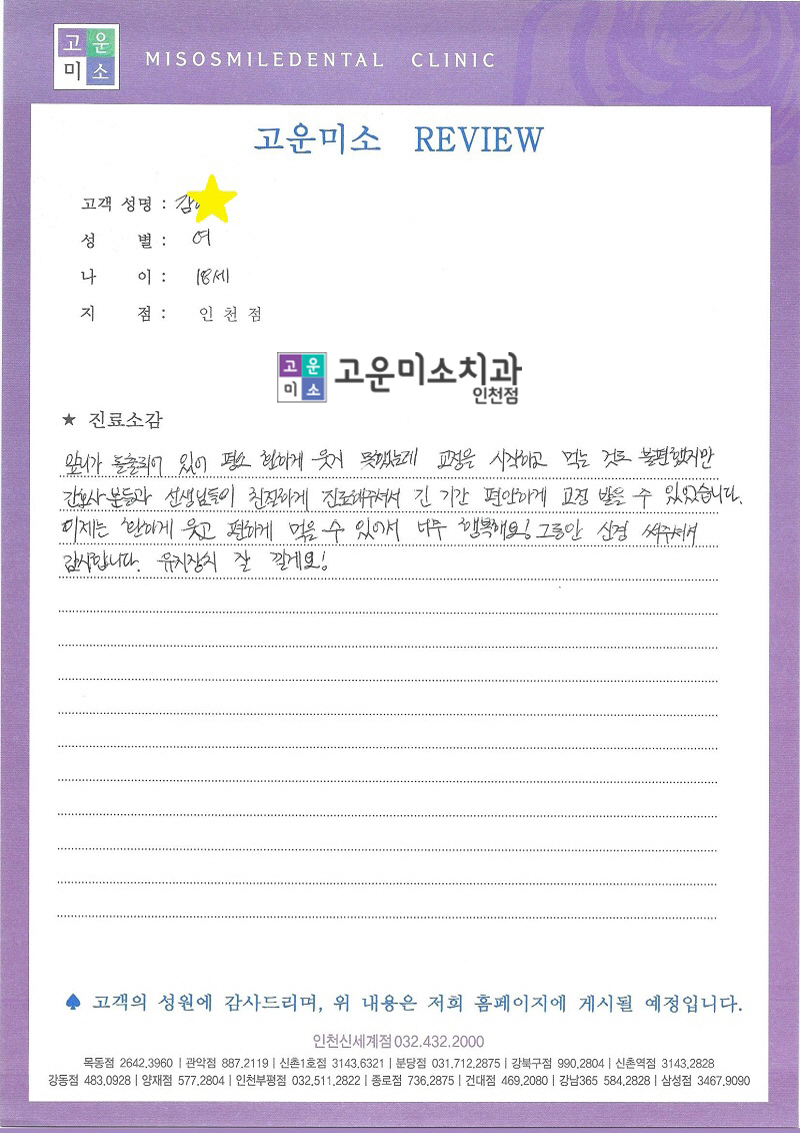 고운
미소
MISOSMILEDENTAL CLINIC
고운미소 REVIEW
고객 성명 : 김
성 별 : 여
나 이 : 18세
지 점 : 인천점
고운
미소
고운미소치과
인천점
★ 진료소감
앞니가 돌출되어 있어 평소 환하게 웃지 못했는데 교정을 시작하고 먹는 것도 불편했지만
간호사분들과 선생님들이 친절하게 진료해주셔서 긴 기간 편안하게 교정 받을 수 있었습니다.
이제는 환하게 웃고 편하게 먹을 수 있어서 너무 행복해요! 그동안 신경 써주셔서
감사합니다. 유지장치 잘 낄게요!
♠ 고객의 성원에 감사드리며, 위 내용은 저희 홈페이지에 게시될 예정입니다.
인천신세계점 032.432.2000
목동점 2642.3960 | 관악점 887.2119 | 신촌1호점 3143.6321 | 분당점 031.712.2875 | 강북구점 990.2804 | 신촌역점 3143.2828
강동점 483.0928 | 양재점 577.2804 | 인천부평점 032.511.2822 | 종로점 736.2875 | 건대점 469.2080 | 강남365 584.2828 | 삼성점 3467.9090